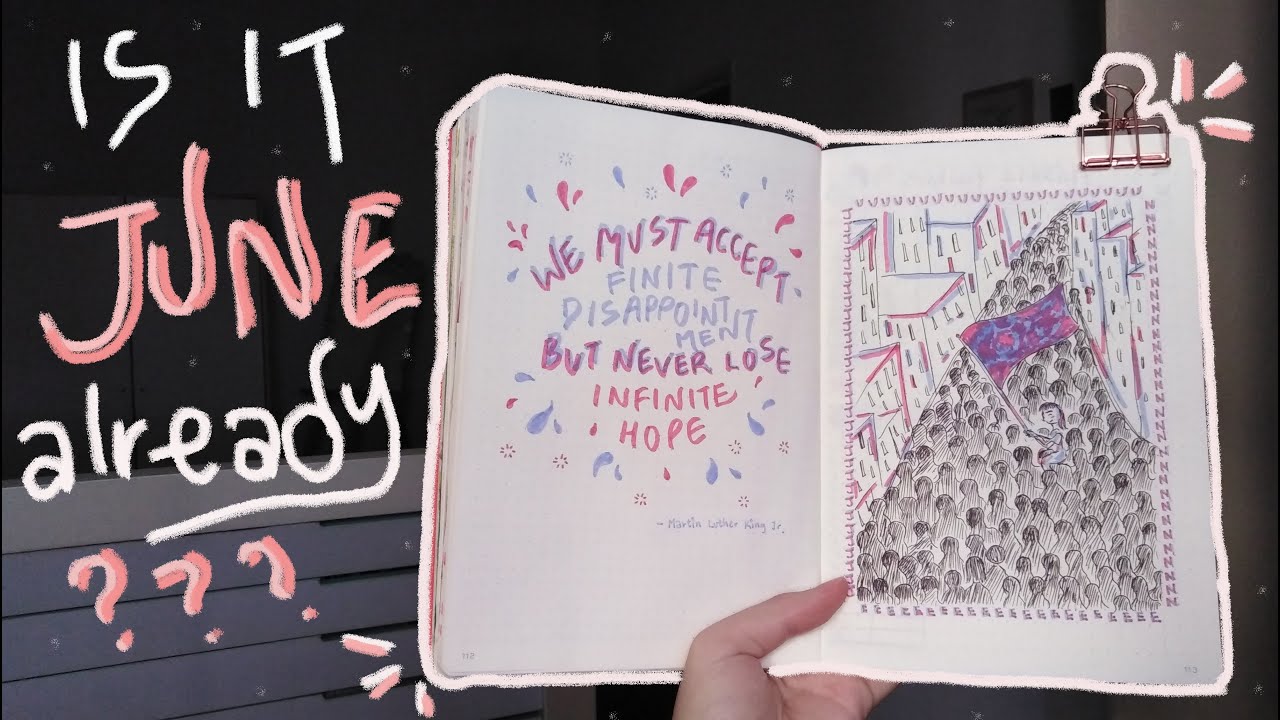 IS IT
JUNE
already
???
WE MUST ACCEPT
FINITE
DISAPPOINT
MENT
BUT NEVER LOSE
INFINITE
HOPE
- Martin Luther King Jr.
112
113